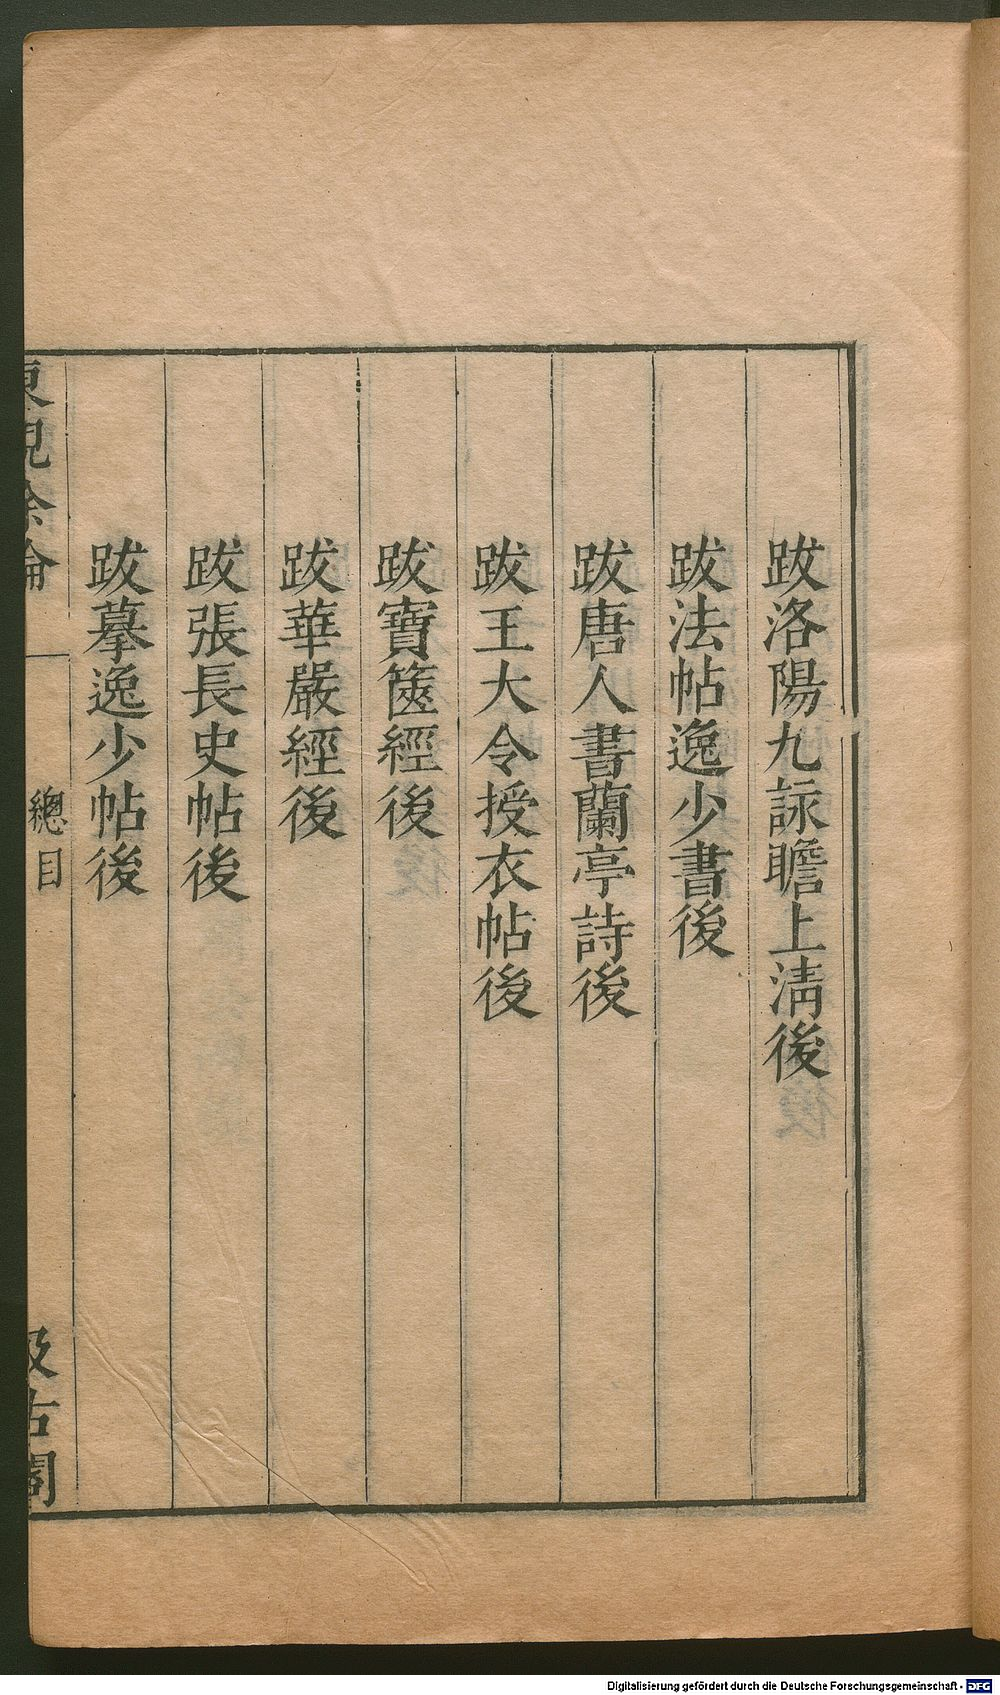 跋洛陽九詠瞻上淸後
跋法帖逸少書後
跋唐人書蘭亭詩後
跋王大令授衣帖後
跋寶篋經後
跋華嚴經後
跋張長史帖後
跋摹逸少帖後
東觀餘論
總目
汲古閣
Digitalisierung gefördert durch die Deutsche Forschungsgemeinschaft - DFG